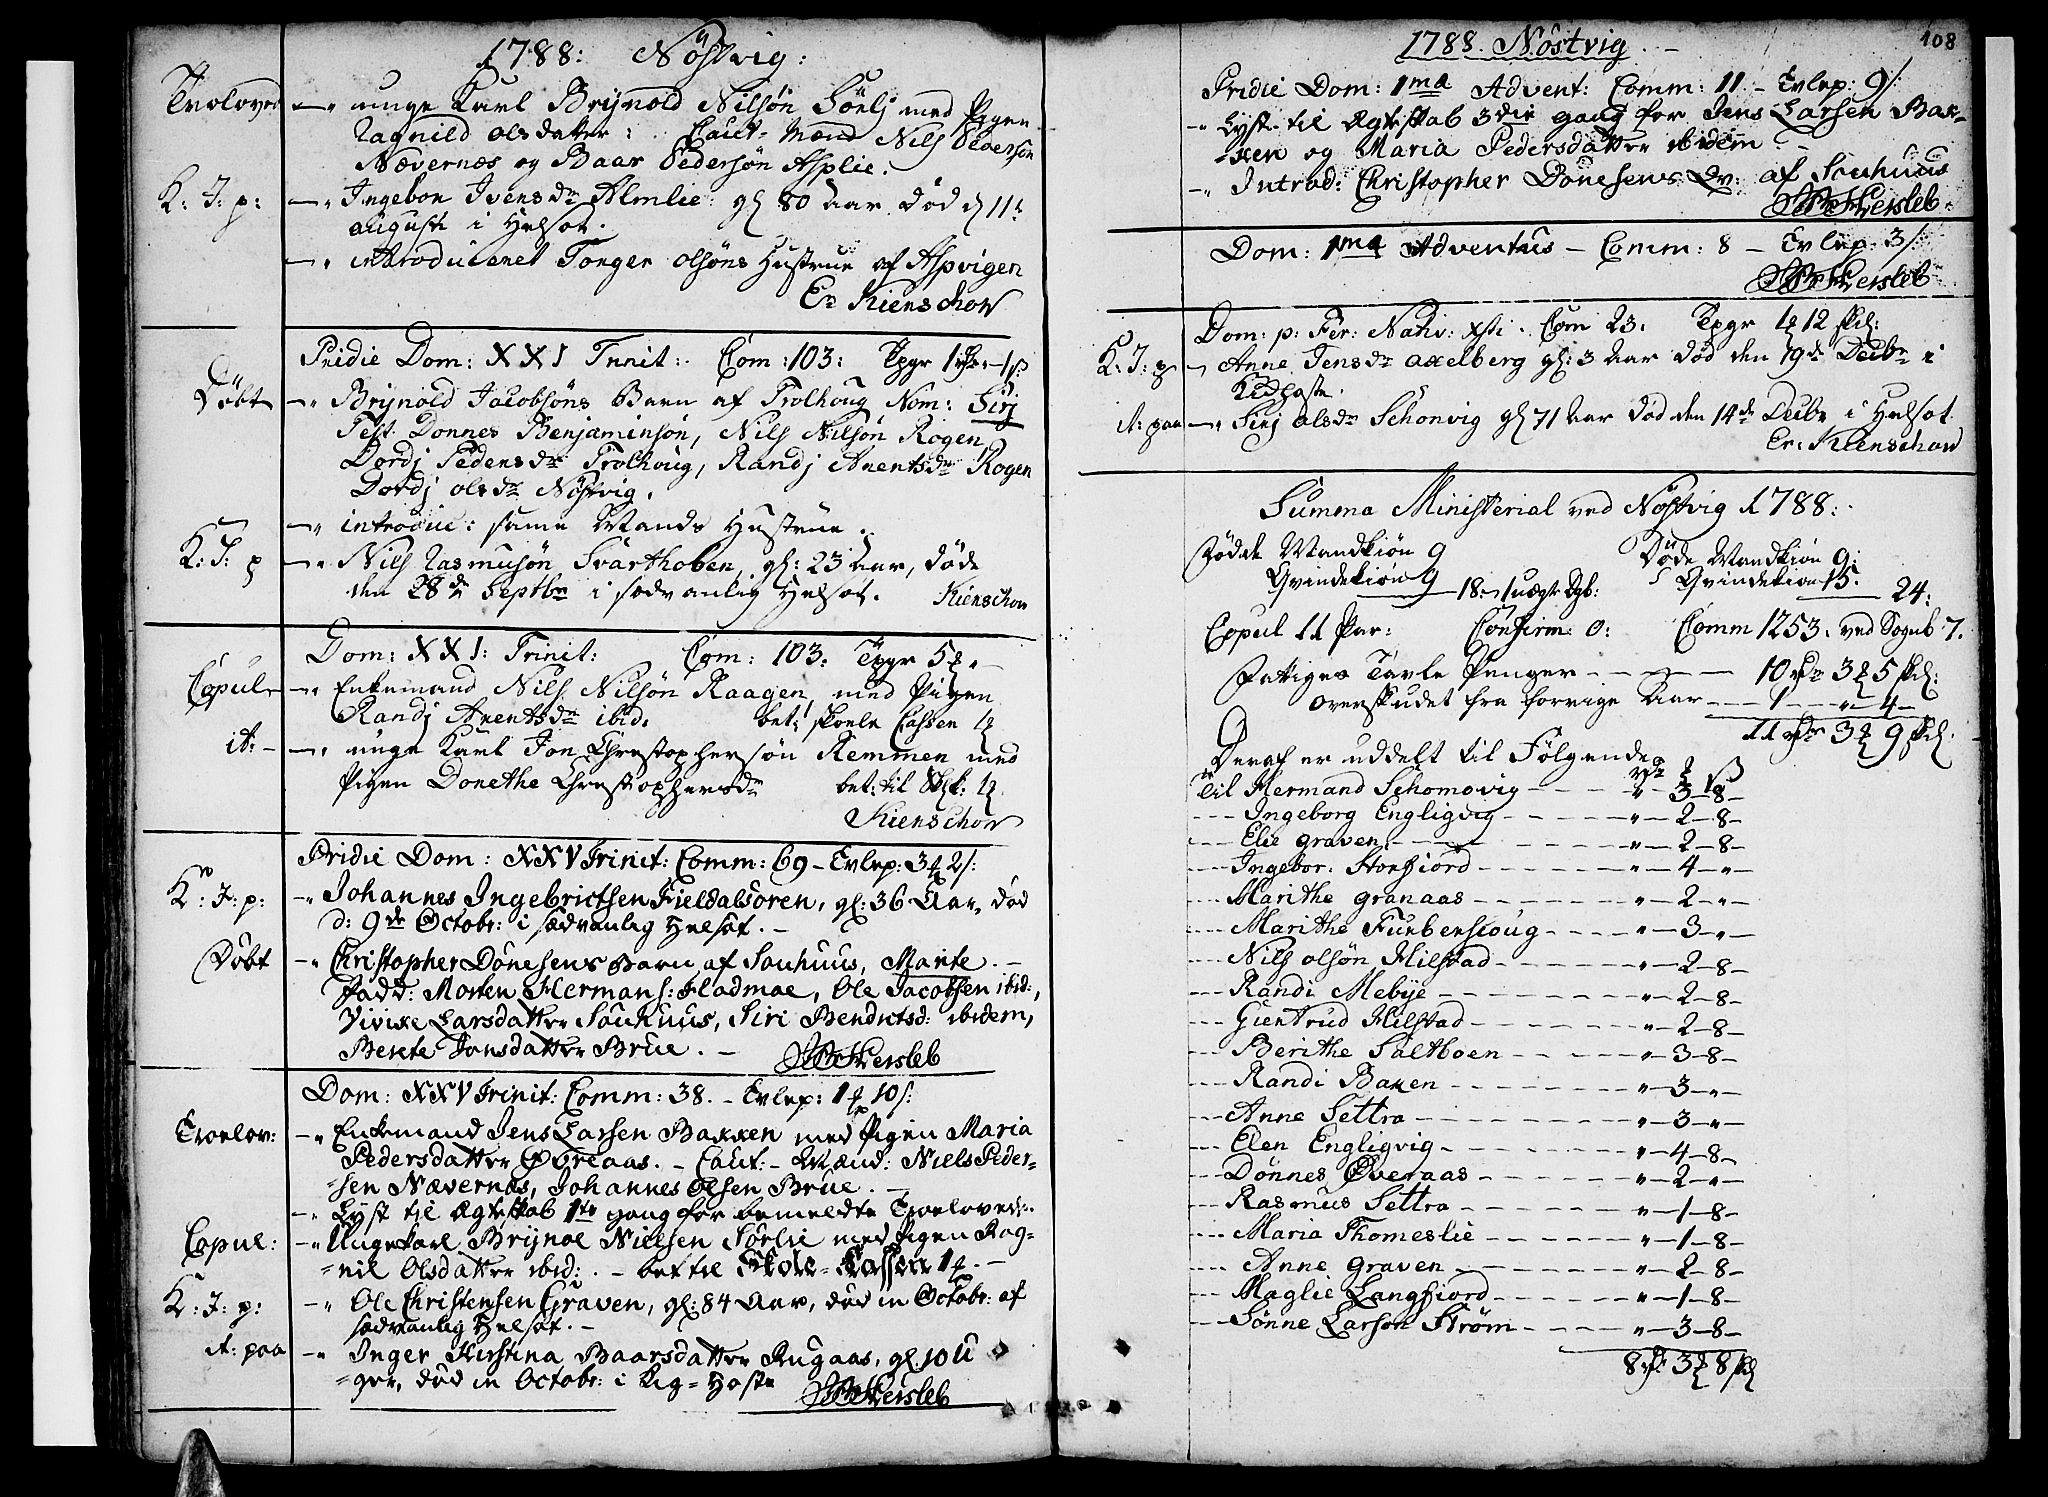 1788: Nöstvig:
Troloved —" unge Karl Brÿnold Nilsön Sörlj med Pigen
Ragnild olsdatter: Caut-Mænd Nils Pedersön
Nævernæs og Baar Pedersön Asplie.
K: J: p: —" Ingebor Ivensdr Almlie gl 80 Aar død d 11:
augusti i Helsot.
—" introduceret Tonger olsöns Hustrue af Aspvigen
Er Kienschow
Pridie Dom: XXI Trinit: Com: 103: Tpgr 1
Döbt —" Brÿnold Jacobsöns Barn af Trolhoug Nom: Sirj
Test. Donnes Benjaminsön, Nils Nilsön Rogen
Dordj Pedersdr Trolhoug, Randj Arentsdr Rogen
Dordj olsdr Nöstvig.
—" introduc: samme Mands Hustrue.
K: J: p —" Nils Rasmusön Svarthoben, gl: 23 Aar, døde
den 28de Septbr i sædvanlig Helsot. Kienschow
Dom: XXI: Trinit: Com: 103: Tpgr 5
Copul —" Enkemand Nils Nilsön Raagen, med Pigen
Randj Arentsdr ibid. bet: skole Cassen 1
it: — —" unge Karl Jon Christophersön Remmen med
Pigen Donethe Christophersdr bet: til Skl: 1
Kienschow
Pridie Dom: XXV Trinit: Comm: 69 — Tvlep: 3 2/:
K: J: p: —" Johannes Ingebrictsen Fieldalsoren, gl: 36 Aar, død
d: 9de Octobr: i sædvanlig Helsot. —
Döbt —" Christopher Dönesens Barn af Souhuus, Marite. —
Fadd: Morten Hermans: Fladmoe, Ole Jacobsen ibid:,
Vivike Larsdatter Souhuus, Siri Bendictsd: ibidem,
Berete Jonsdatter Brüe. — Hersleb
Dom: XXV Trinit: Comm: 38. — Tvlep: 1 10/:
Troelov: —" Enkemand Jens Larsen Bakken med Pigen Maria
Pedersdatter Overaas. — Caut: — Mænd: Niels Peder-
sen Nævernæs, Johannes Olsen Brüe. —
—" Lyst til Ægteskab 1te gang for bemeldte Troelovede.
Copul: —" Ungekarl Brÿnol Nielsen Sörlie med Pigen Rag-
nil Olsdatter ibid: . — bet til Skole-Cassen 1 . —
K: J: p: —" Ole Christensen Graven, gl: 84 Aar, død in Octobr: af
sædvanlig Helsot. —
it: paa —" Inger Kirstina Baarsdatter Rugaas, gl. 10 U
ger, død in Octobr: i Kig-Hoste Hersleb
108
1788. Nöstvig. —
Pridie Dom: 1ma Advent: Comm: 11 — Tvlep: 9/
—" Lyst til Ægteskab 3die gang for Jens Larsen Bak-
ken og Maria Pedersdatter ibidem
—" Introd: Christopher Dönesens Qv: af Souhuus
Hersleb.
Dom: 1ma Adventus — Comm: 8 — Tvlep: 3/.
Hersleb
Dom: p: Fer: Nativ: Xsti. Com 23. Tpgr 1 12 skl:
K: J: p —" Anne Jensdr axelberg gl: 3 Aar død den 19de Decbr i
Kighoste.
it: paa —" Sirj olsdr Schonvig gl 71 Aar død den 14de Decbr i Helsot
Er: Kienschow
Summa Ministerial ved Nöstvig 1788:
Födde Mandkiön 9 Döde Mandkiön 9:
Qvindekiön 9 Qvindekiön 15.
18: 1 uægte Dgb: 24:
Copul 11 Par: Confirm: 0: Comm 1253. ved Sognb 7.
Fattiges Tavle Penger — 10 rdr 3 5 skl:
overskudet fra forrige Aar — 1 — " 4 —
11 rdr 3 9 skl.
Deraf er uddelt til Følgende
til Hermand Schomovig — " — 3 — 8 —
Ingeborg Engligvig — " — 2 — 8 —
Elie graven — " — 2 — 8 —
Ingebor: Storfiord — " — 4 — " —
Marithe granaas — " — 2 — " —
Marithe Furbenskoug — " — 3 — " —
Nils olsön Hilstad — " — 2 — 8 —
Randi Mebÿe — " — 2 — 8 —
Giertrud Hilstad — " — 2 — 8 —
Berithe Saltboen — " — 3 — 8 —
Randi Baken — " — 3 — " —
Anne Settra — " — 3 — " —
Elen Engligvig — " — 4 — 8 —
Dönnes Øveraas — " — 2 — " —
Rasmus Settra — " — 1 — 8 —
Maria Thomeslie — " — 1 — 8 —
Anne graven — " — 2 — 8 —
Maglie Langfiord — " — 1 — 8 —
Sönne Larsön Strøm — " — 3 — 8 —
8 rdr 3 8 skl